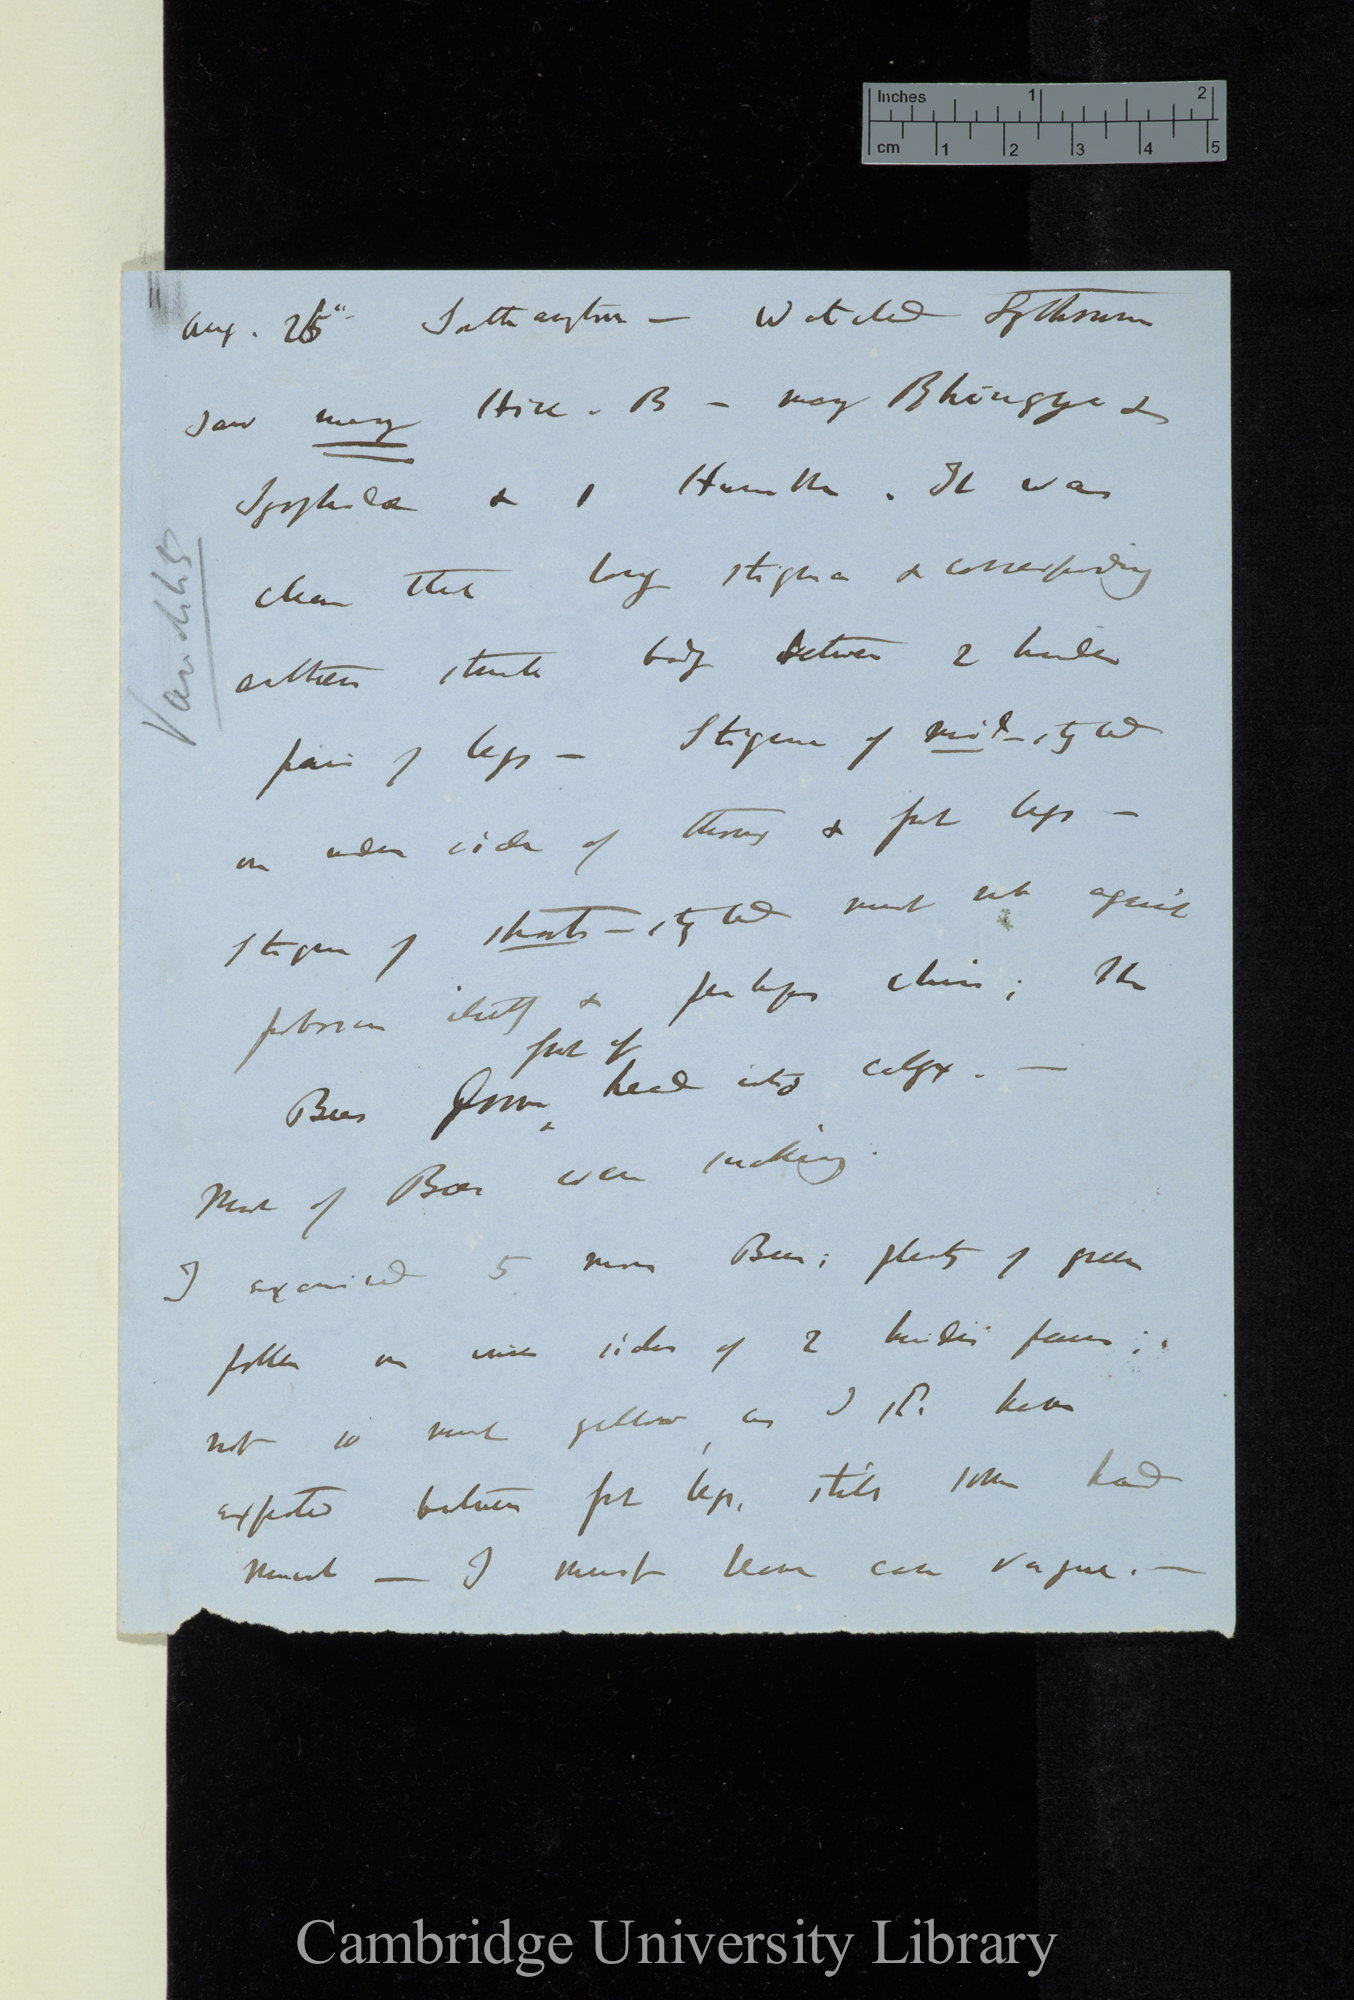 Inches 1 2
cm 1 2 3 4 5
Aug. 25th Southampton — Watched Lythrum
Saw many Hive. B — many Rhingya &
Syrphidæ & 1 Humble. It was
clear that long stigma & corresponding
anthers struck body between 2 hinder
pair of legs — Stigma of mid-styled
on under side of thorax & front legs —
Stigma of short-styled must rub against
proboscis sheath & perhaps chin; the
front of
Bees head into calyx. —
Most of Bees were sucking.
I examined 5 more Bees; plenty of green
pollen on inner sides of 2 hinder femurs;
not so much yellow, as I shd. have
expected between front legs, still some had
much — I must leave case vague. —
Cambridge University Library